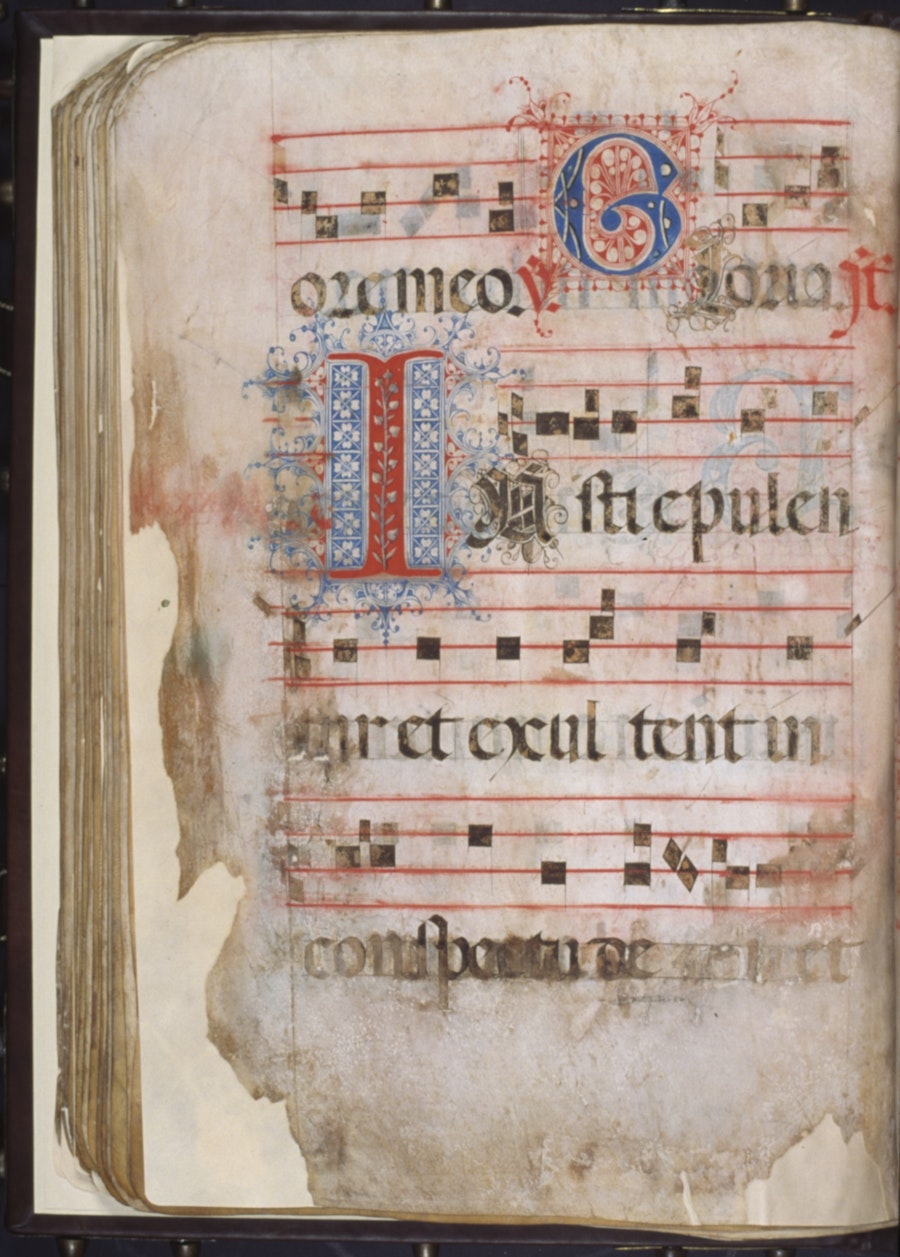 ore meo. V. GLoria.
IUsti epulen
tur et exul tent in
conspectu de et